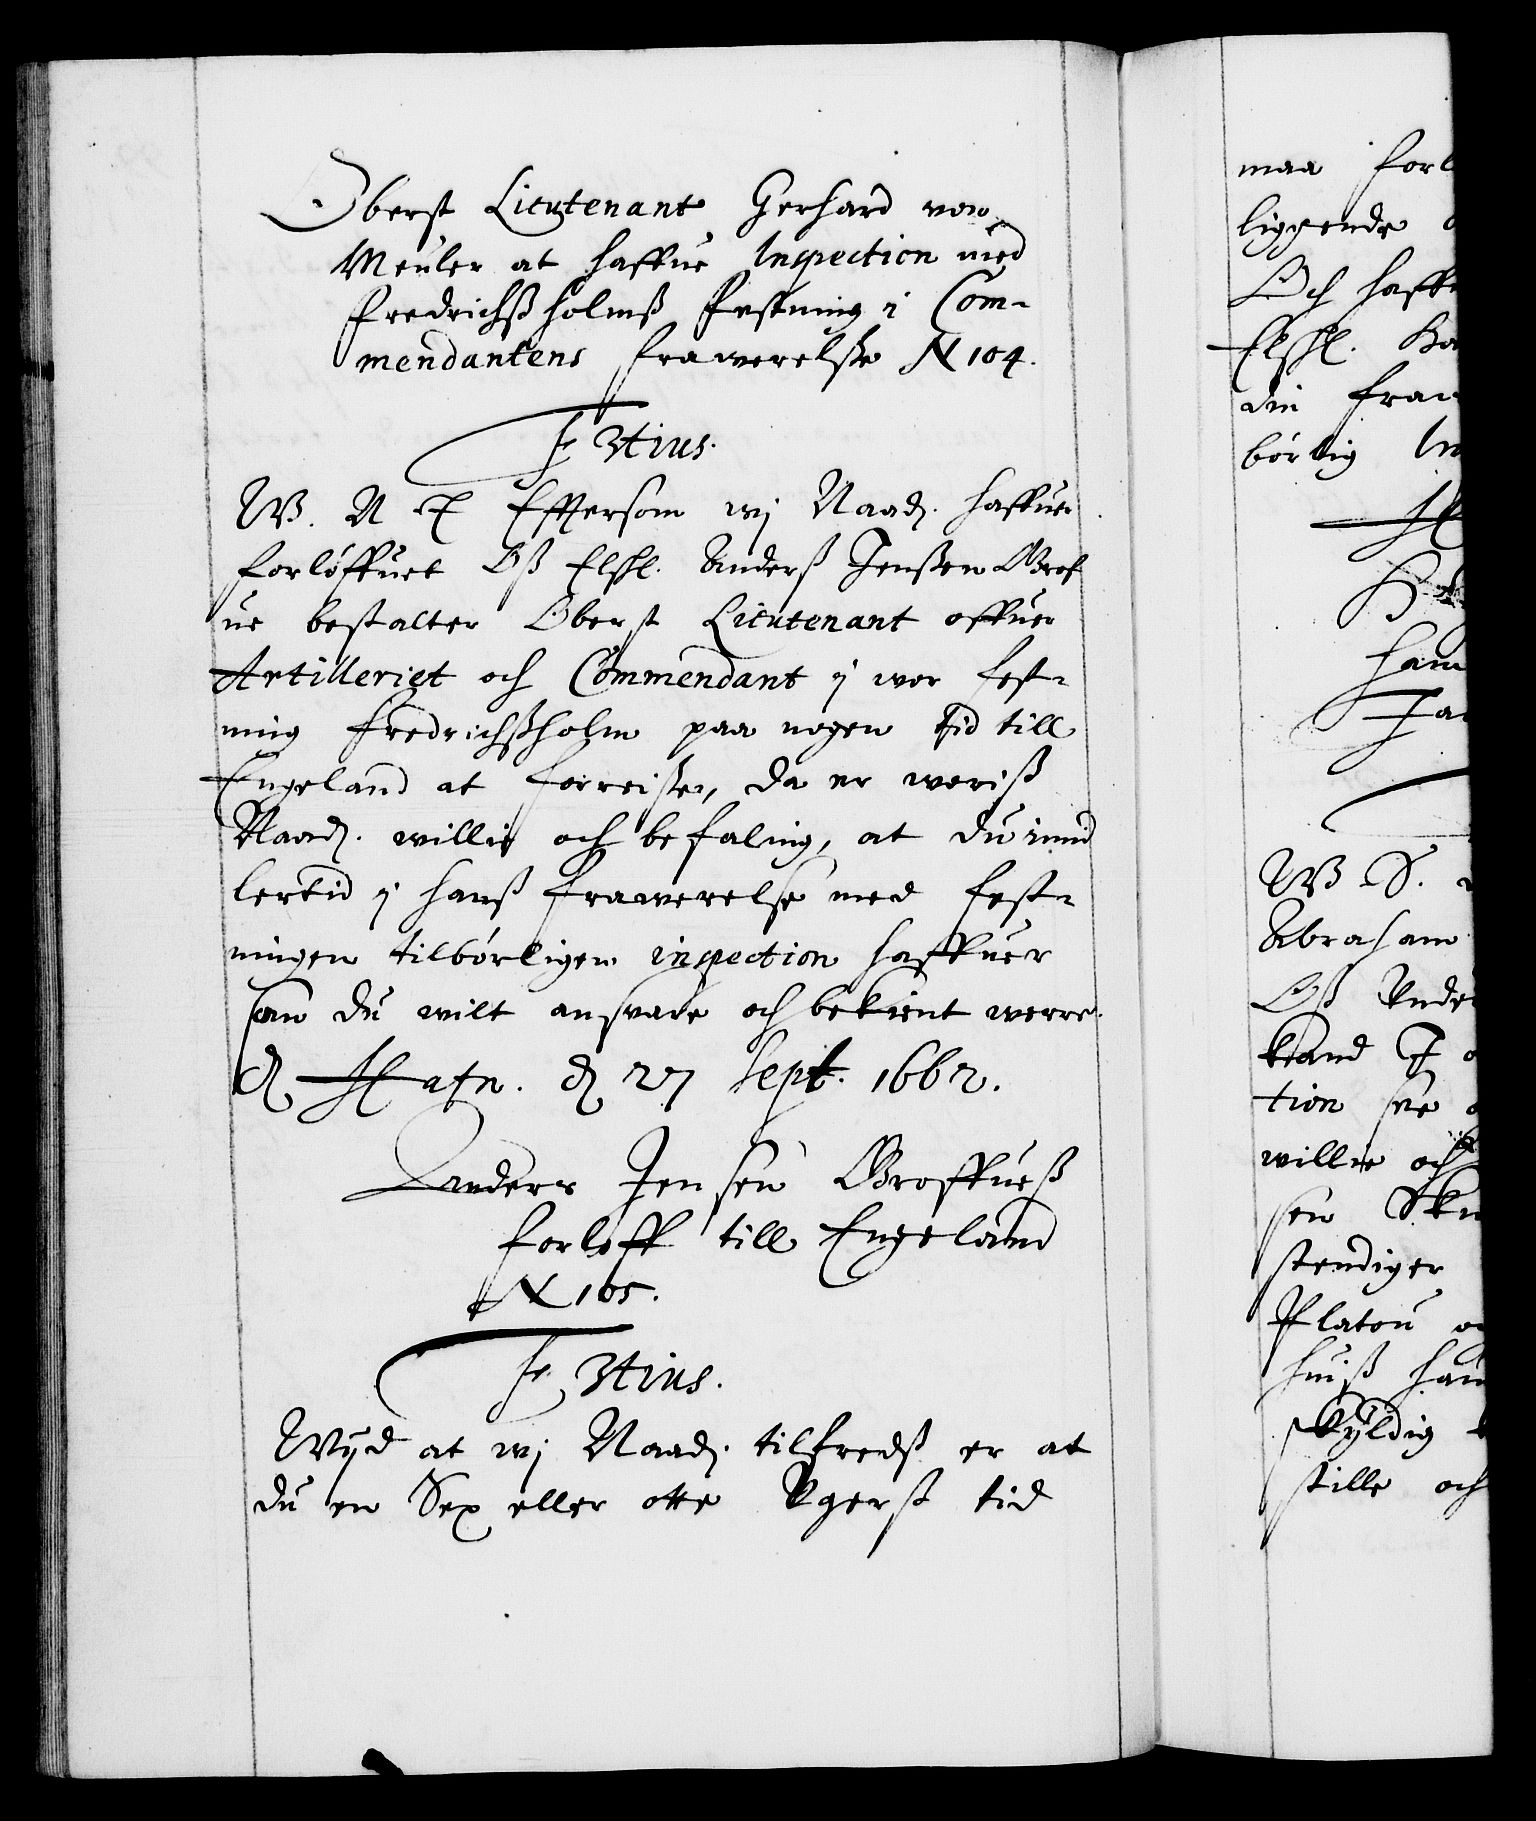 Oberst Lieutenant Gerhard von
Meuler at haffue Inspection med
Fredrichßholmß Festning i Com-
mendantens frawerelße N 104.
F 3tius.
W. N T Efftersom wj Naad. haffuer
forløffuet Oß Elskl. Anderß Jenßen Grof
ue bestalter Oberst Lieutenant offuer
Artilleriet och Commendant i wor fest-
ning Fredrichßholm paa nogen tid till
Engeland at forreiße, da er woriß
Naad. willie och befaling, at du imid
lertid i hanß frawerelse med fest-
ningen tilbørligen inspection haffuer
som du wilt answare och bekient werre.
d Hafn. d 27 Sept. 1662.
Anders Jensen Groffueß
forloff till Engeland
N 105.
F 3tius.
Wijd at wj Naad. tilfredß er at
du en Sex eller otte Vgerß tid
maa forl
liggende
Och haff
Elskl.
din fraw
børlig In
ham
W S.
Abraham
Oß Vnder
tion
willie och
sen
stendiger
Platou
huiß han
skyldig
stille och